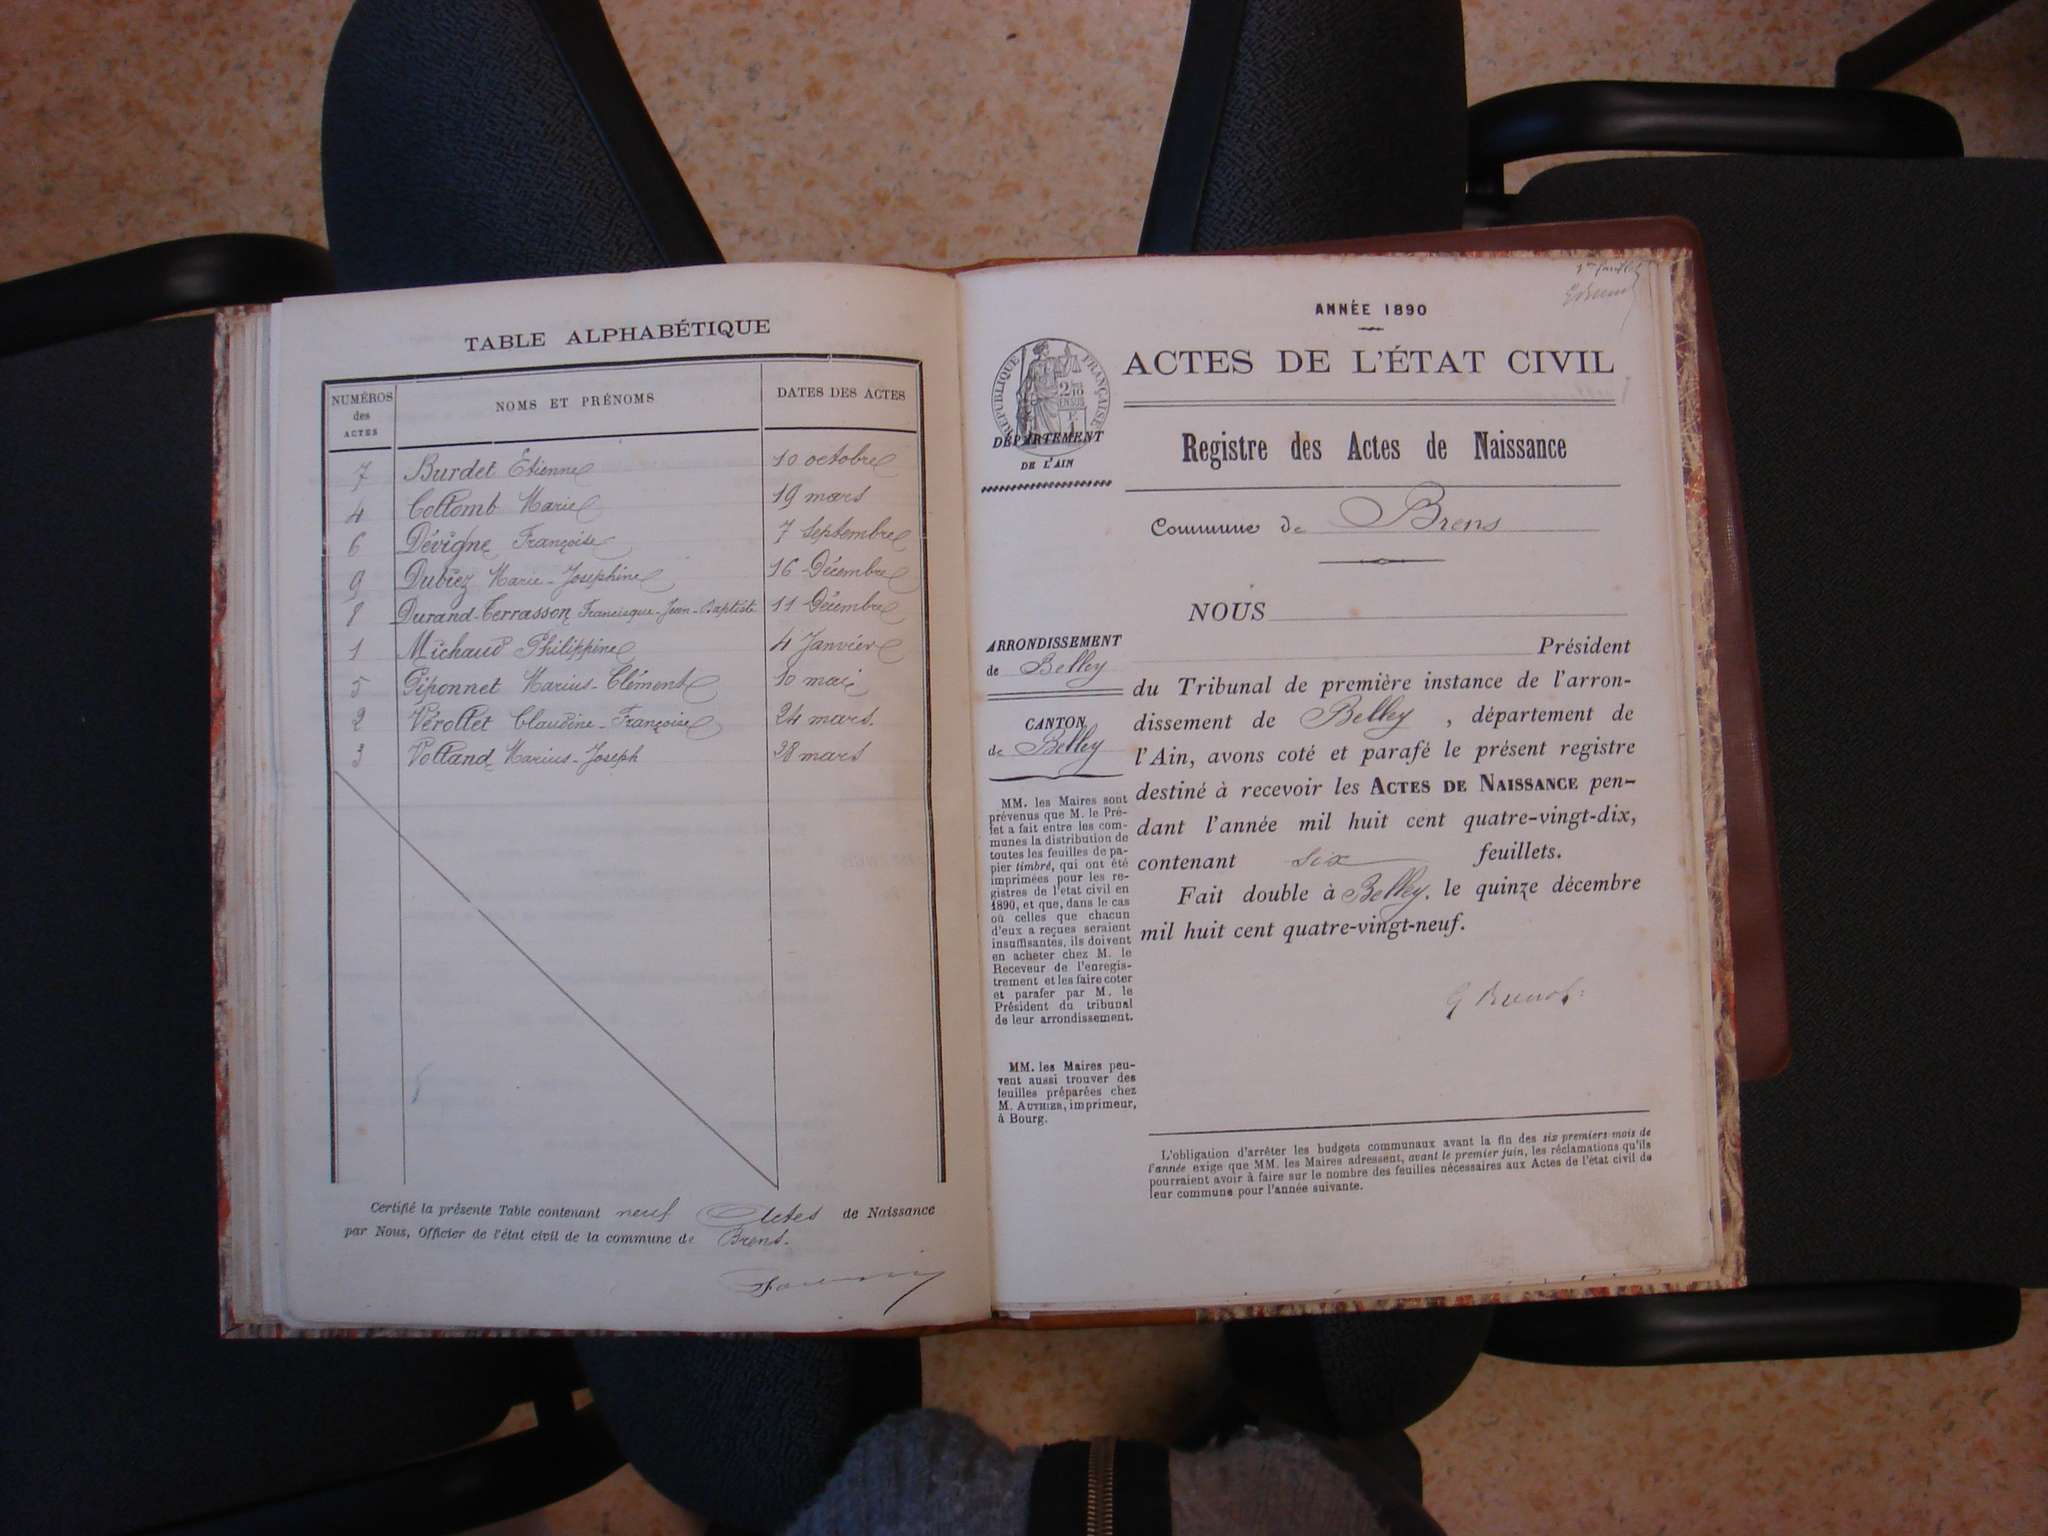 TABLE ALPHABÉTIQUE
NUMÉROS des ACTES
NOMS ET PRÉNOMS
DATES DES ACTES
7 Burdet Étienne 10 octobre
4 Collomb Marie 19 mars
6 Dévigne Françoise 7 Septembre
9 Dubiez Marie-Joséphine 16 Décembre
8 Durand-Terrasson Francisque-Jean-Baptiste 11 Décembre
1 Michaud Philippine 4 Janvier
5 Piponnet Marius-Clément 10 mai
2 Vérollet Claudine-Françoise 24 mars.
3 Volland Marius-Joseph 28 mars
Certifié la présente Table contenant neuf Actes de Naissance
par Nous, Officier de l'état civil de la commune de Brens.
ANNÉE 1890
ACTES DE L'ÉTAT CIVIL
RÉPUBLIQUE FRANÇAISE
DÉPARTEMENT
DE L'AIN
Registre des Actes de Naissance
Commune de Brens
ARRONDISSEMENT
de Belley
CANTON
de Belley
MM. les Maires sont
prévenus que M. le Pré-
fet a fait entre les com-
munes la distribution de
toutes les feuilles de pa-
pier timbré, qui ont été
imprimées pour les re-
gistres de l'état civil en
1890, et que, dans le cas
où celles que chacun
d'eux a reçues seraient
insuffisantes, ils doivent
en acheter chez M. le
Receveur de l'enregis-
trement et les faire coter
et parafer par M. le
Président du tribunal
de leur arrondissement.
MM. les Maires peu-
vent aussi trouver des
feuilles préparées chez
M. AUTHIER, imprimeur,
à Bourg.
NOUS
Président
du Tribunal de première instance de l'arron-
dissement de Belley, département de
l'Ain, avons coté et parafé le présent registre
destiné à recevoir les ACTES DE NAISSANCE pen-
dant l'année mil huit cent quatre-vingt-dix,
contenant six feuillets.
Fait double à Belley, le quinze décembre
mil huit cent quatre-vingt-neuf.
L'obligation d'arrêter les budgets communaux avant la fin des six premiers mois de
l'année exige que MM. les Maires adressent, avant le premier juin, les réclamations qu'ils
pourraient avoir à faire sur le nombre des feuilles nécessaires aux Actes de l'état civil de
leur commune pour l'année suivante.